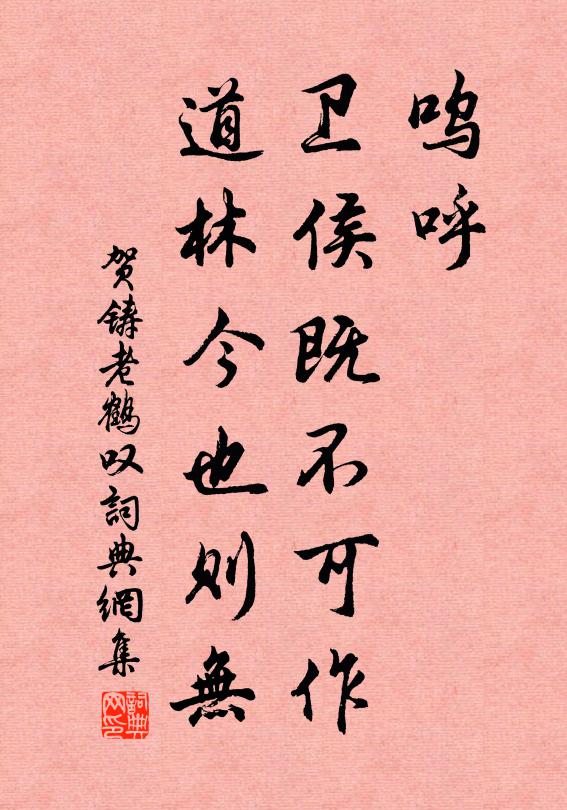 呜呼
卫侯既不可作
道林今也则無
贺铸老鹤叹詞典網集
詞典网印